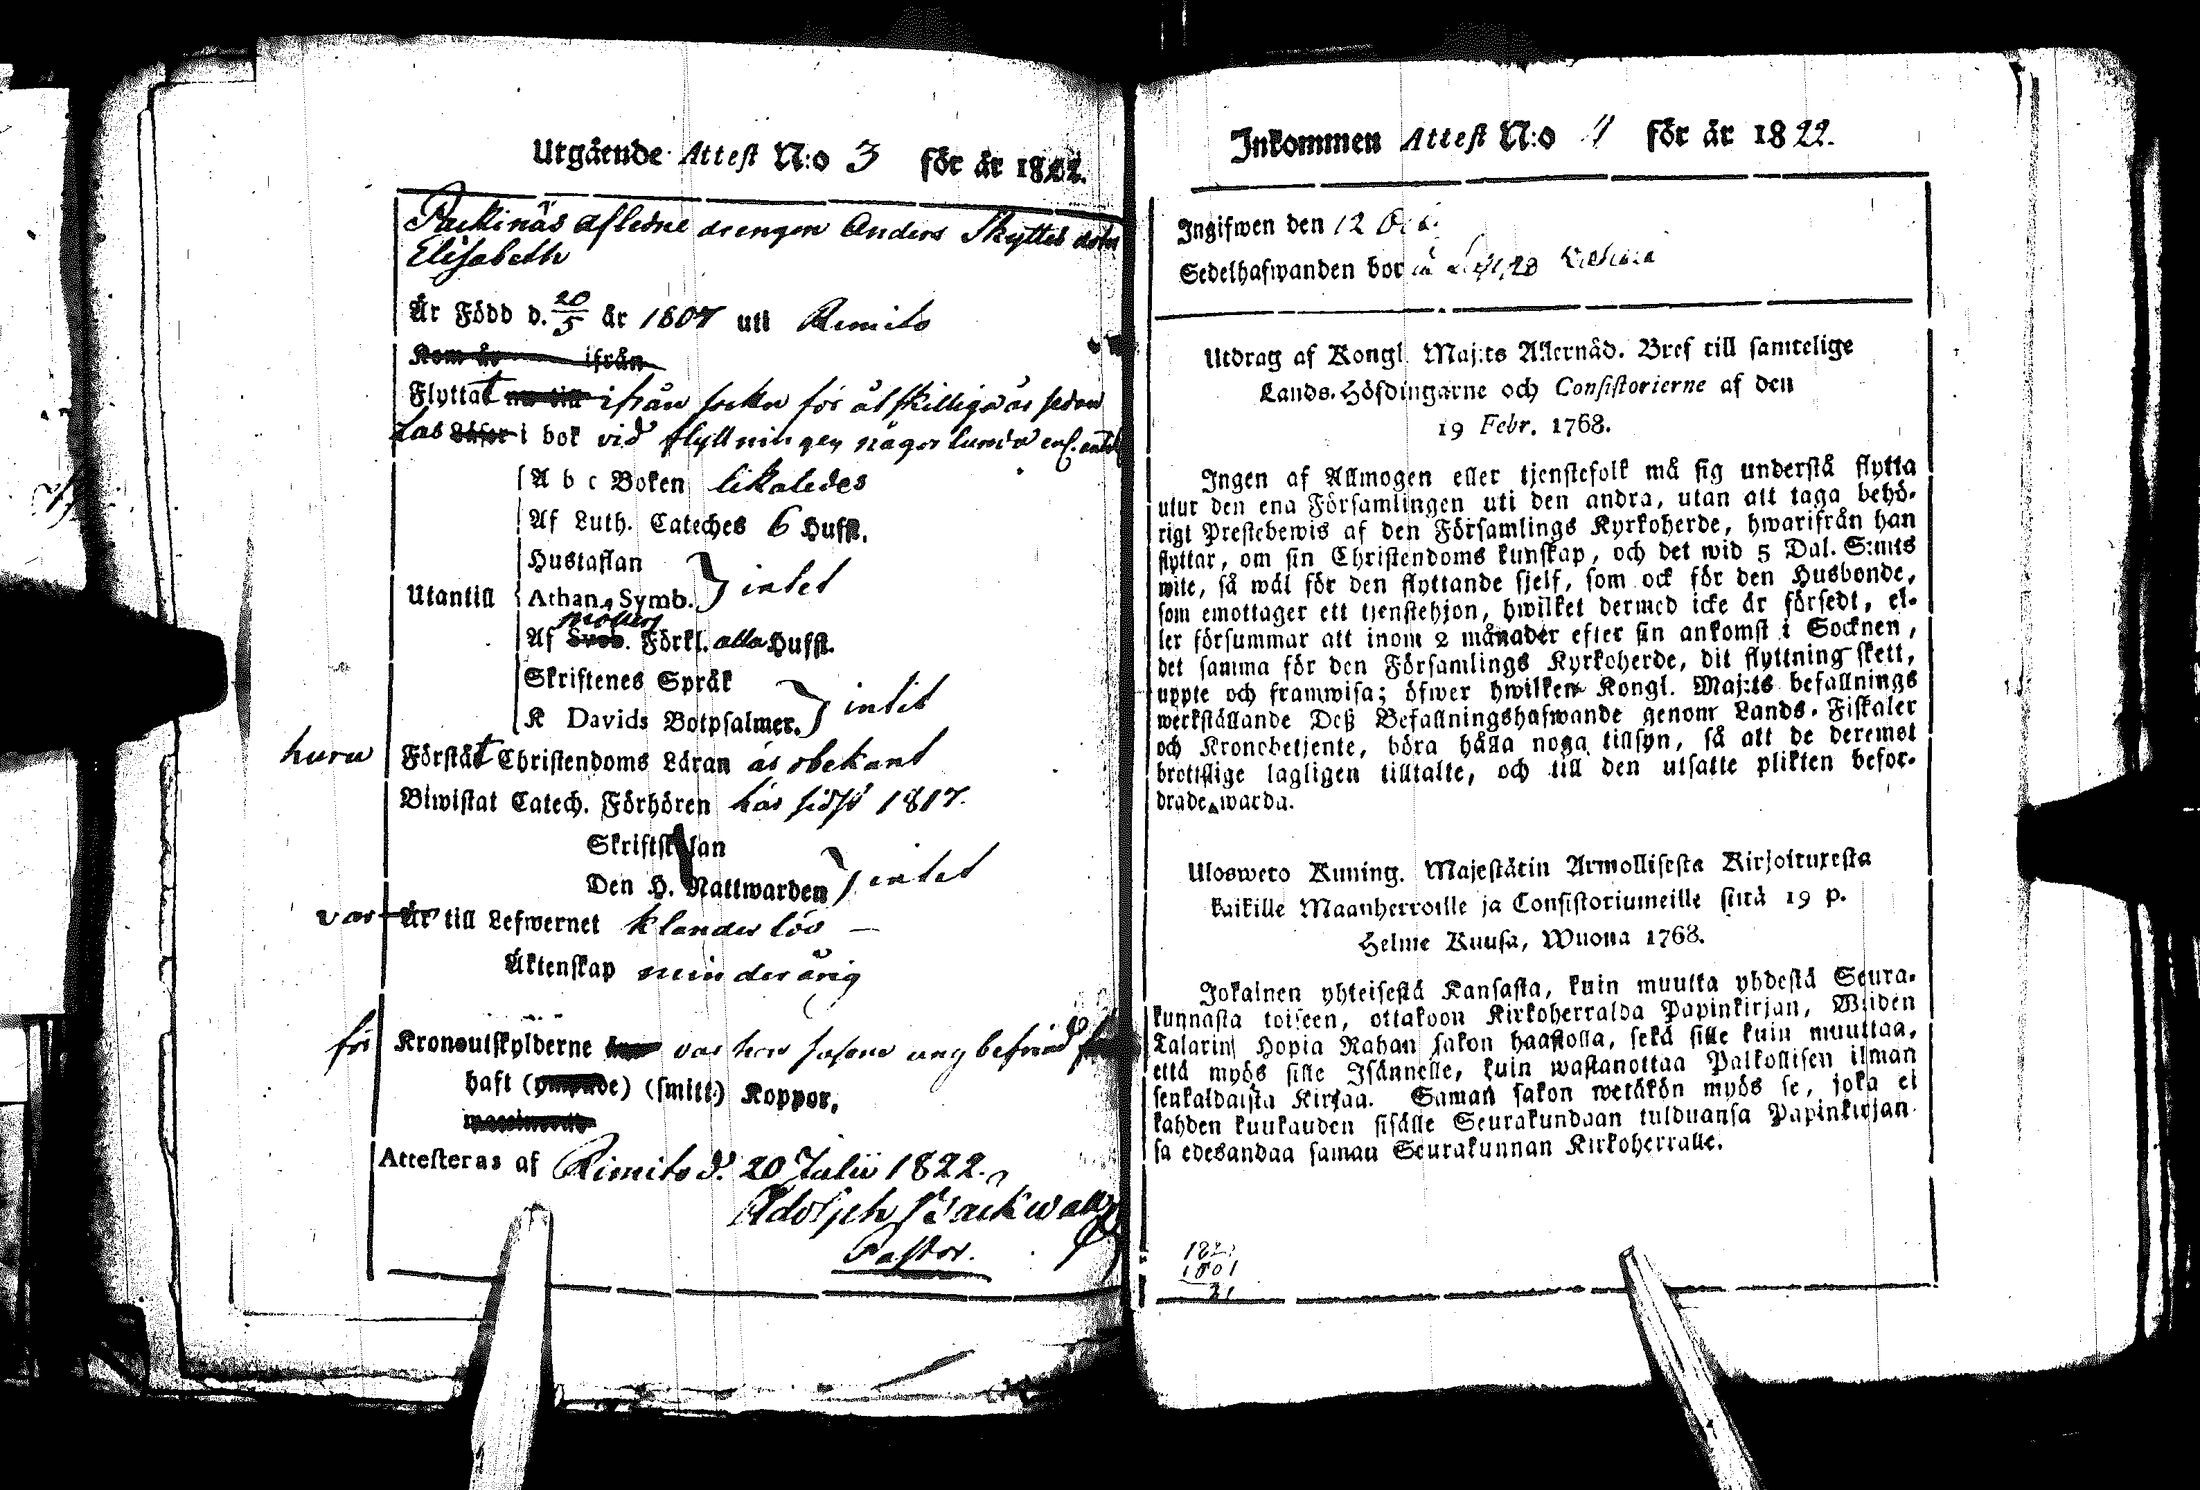 Utgående Attest N:o 3 för år 1822.
afledne drengen Anders Skyttes
Elisabeth
Är Född d. 20/5 år 1807 uti Rimito
Kom år ifrån
Flyttat nu till ifrån sokn för åtskilliga år sedan
Las Läser i bok vid flyttningen någorlunda
Utantill
A b c Boken likaledes
Af Luth. Cateches 6 Hufst.
Hustaflan
Athan. Symb. } intet
Af Sveb. Förkl. alla Hufst.
Skriftenes Språk
K Davids Botpsalmer. } intet
huru Förståt Christendoms Läran är obekant
Biwistat Catech. Förhören här sidst 1817.
Skriftskolan
Den H. Nattwarden } intet
var Är till Lefwernet klanderlös —
Äktenskap minderårig
för Kronoutskylderne var hon såsom ung befriad
haft (ympade) (smitt.) Koppor,
Attesteras af Rimito d. 20 Julii 1822.
Adolph
Pastor.
Inkommen Attest N:o 4 för år 1822.
Ingifwen den 12 Oct.
Sedelhafwanden bor
Utdrag af Kongl. Maj:ts Allernåd. Bref till samtelige
Lands-Höfdingarne och Consistorierne af den
19 Febr. 1768.
Ingen af Allmogen eller tjenstefolk må sig understå flytta
utur den ena Församlingen uti den andra, utan att taga behö-
rigt Prestebewis af den Församlings Kyrkoherde, hwarifrån han
flyttar, om sin Christendoms kunskap, och det wid 5 Dal. S:mts
wite, så wäl för den flyttande sjelf, som ock för den Husbonde,
som emottager ett tjenstehjon, hwilket dermed icke är försedt, el-
ler försummar att inom 2 månader efter sin ankomst i Socknen,
det samma för den Församlings Kyrkoherde, dit flyttning skett,
uppte och framwisa; öfwer hwilken Kongl. Maj:ts befallnings
werkställande Deß Befallningshafwande genom Lands-Fiskaler
och Kronobetjente, böra hålla noga tillsyn, så att de deremot
brottslige lagligen tilltalte, och till den utsatte plikten befor-
drade warda.
Ulosweto Kuning. Majestätin Armollisesta Kirjoituxesta
kaikille Maanherroille ja Consistoriumeille siitä 19 p.
Helme Kuusa, Wuona 1768.
Jokainen yhteisestä Kansasta, kuin muutta yhdestä Seura-
kunnasta toiseen, ottakoon Kirkoherralda Papinkirjan, Wiiden
Talarin Hopia Rahan sakon haastolla, sekä sille kuin muuttaa,
että myös sille Isännelle, kuin wastanottaa Palkollisen ilman
senkaldaista Kirjaa. Saman sakon wetäkön myös se, joka ei
kahden kuukauden sisälle Seurakundaan tulduansa Papinkirjan-
sa edesandaa saman Seurakunnan Kirkoherralle.
1822
1801
21